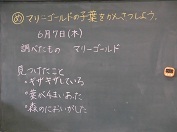 め マリーゴールドの子葉をかんさつしよう。
6月7日(木)
調べたもの マリーゴールド
見つけたこと
・ギザギザしている
・葉が4まいあった
・森のにおいがした